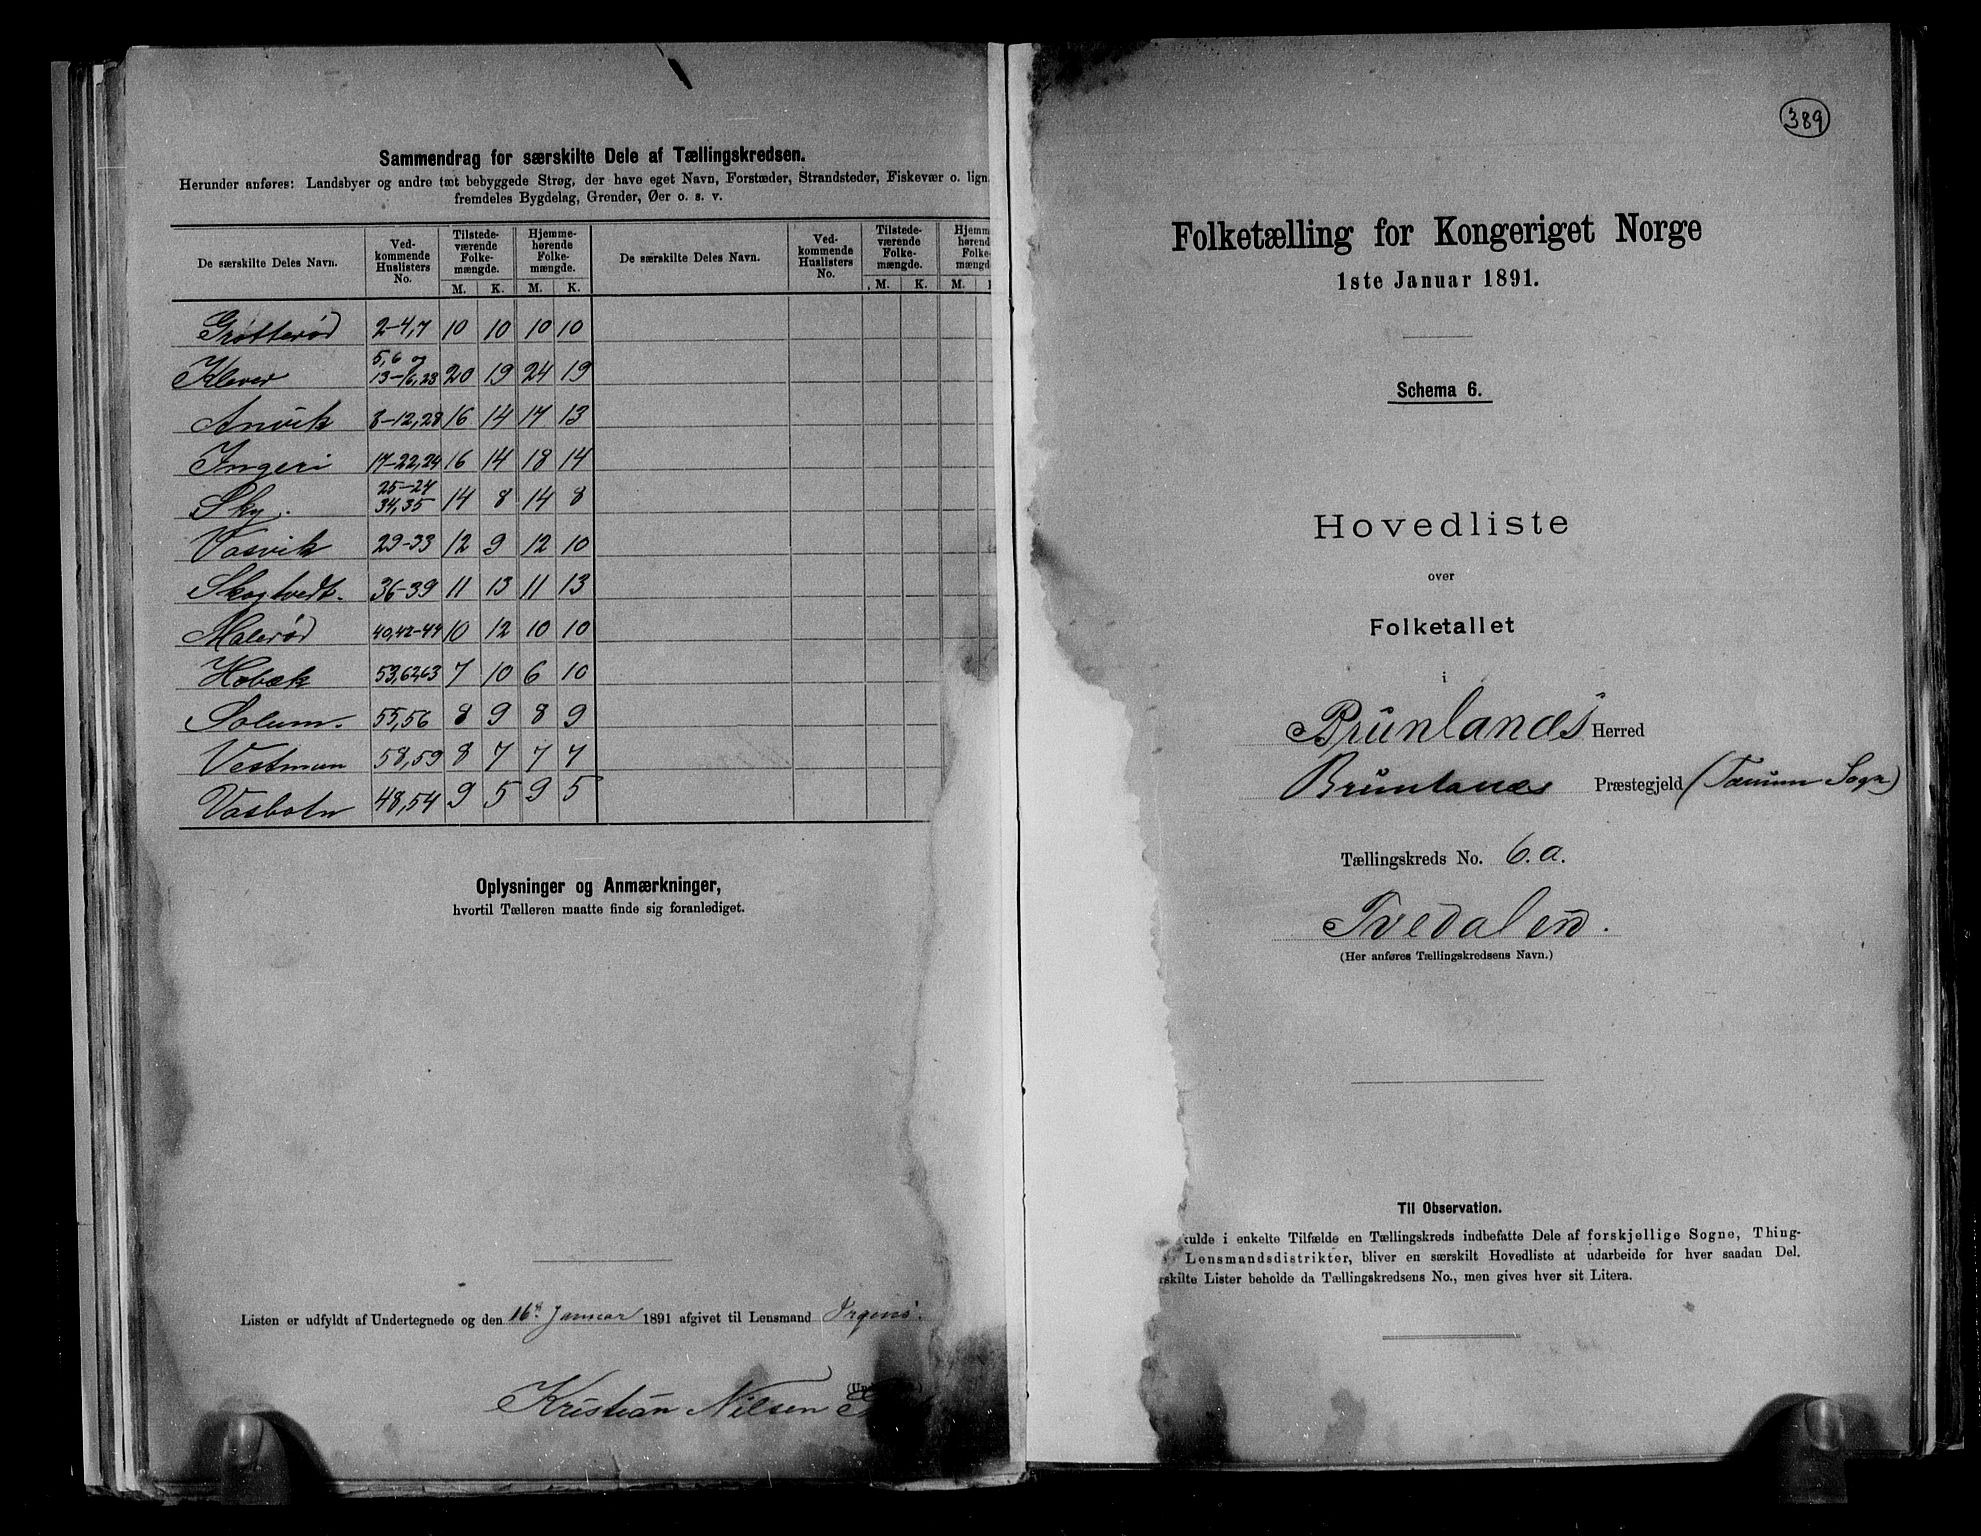 Sammendrag for særskilte Dele af Tællingskredsen.
Herunder anføres: Landsbyer og andre tæt bebyggede Strøg, der have eget Navn, Forstæder, Strandsteder, Fiskevær o. lign.
fremdeles Bygdelag, Grender, Øer o. s. v.
De særskilte Deles Navn. Ved-kommende Huslisters No. Tilstede-værende Folke-mængde. Hjemme-hørende Folke-mængde. De særskilte Deles Navn. Ved-kommende Huslisters No. Tilstede-værende Folke-mængde. Hjemme-hørende Folke-mængde
M. K. M. K. M. K. M. K
Grøtterød 2-4,7 10 10 10 10
Klever 5,6 og 13-16,23 20 19 24 19
Anvik 8-12,28 16 14 17 13
Ingeri 17-22,24 16 14 18 14
Sky. 25-27 34,35 14 8 14 8
Vasvik 29-33 12 9 12 10
Skogtvedt. 36-39 11 13 11 13
Malerød 40,42-44 10 12 10 10
Hobæk 53,62,63 7 10 6 10
Solum. 55,56 8 9 8 9
Vestman 58,59 8 7 7 7
Vasbotn 48,54 9 5 9 5
Oplysninger og Anmærkninger,
hvortil Tælleren maatte finde sig foranlediget.
Listen er udfyldt af Undertegnede og den 16de Januar 1891 afgivet til Lensmand Irgens.
Kristian Nilsen
389
Folketælling for Kongeriget Norge
1ste Januar 1891.
Schema 6.
Hovedliste
over
Folketallet
i
Brunlanæs Herred
Brunlanæs Præstegjeld (Tanum Sogn)
Tællingskreds No. 6.a.
Tvedalen.
(Her anføres Tællingskredsens Navn.)
Til Observation.
kulde i enkelte Tilfælde en Tællingskreds indbefatte Dele af forskjellige Sogne, Thing-
Lensmandsdistrikter, bliver en særskilt Hovedliste at udarbeide for hver saadan Del.
rskilte Lister beholde da Tællingskredsens No., men gives hver sit Litera.